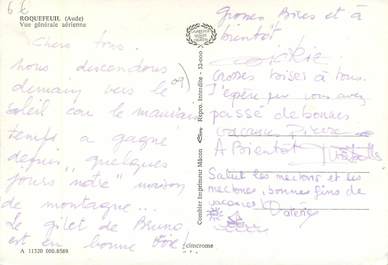 6€
ROQUEFEUIL (Aude)
Vue générale aérienne
Chers tous.
nous descendons
demain vers le
soleil car le mauvais
temps a gagné
depuis "quelques
jours "notre" maison
de montagne...
Le gilet de Bruno
est en bonne voie!
A 11320 000.8569
cimcrome
Combier Imprimeur Mâcon
Repro. Interdite - 32-000
Grosses Bises et à
bientôt
Grosses bises à tous.
J'espère que vous avez
passé de bonnes
vacances Pierre
A Bientôt Isabelle
Salut les mectons et les
mectones, bonnes fins de
vacances! Valérie